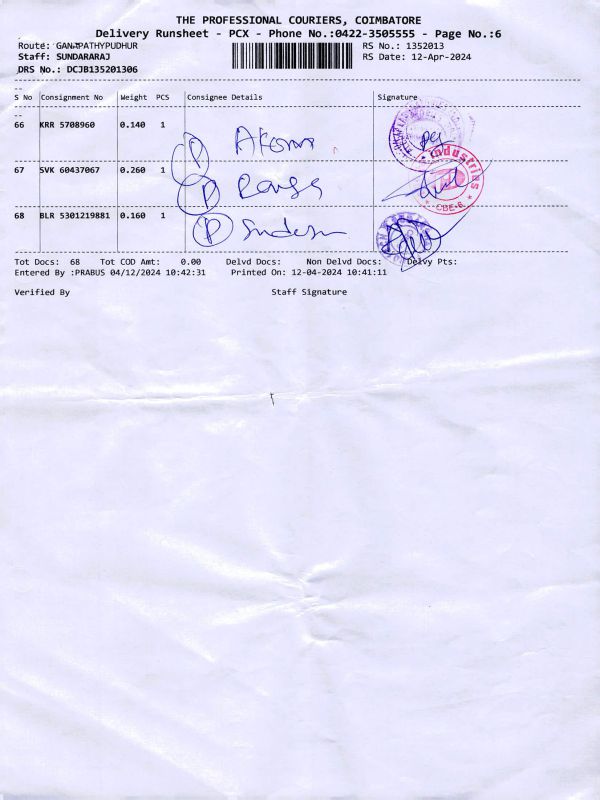 THE PROFESSIONAL COURIERS, COIMBATORE
Delivery Runsheet - PCX - Phone No.:0422-3505555 - Page No.:6
Route: GANAPATHYPUDHUR RS No.: 1352013
Staff: SUNDARARAJ RS Date: 12-Apr-2024
DRS No.: DCJB135201306
S No Consignment No Weight PCS Consignee Details Signature
66 KRR 5708960 0.140 1
67 SVK 60437067 0.260 1
Industries
CBE-6
68 BLR 5301219881 0.160 1
Tot Docs: 68 Tot COD Amt: 0.00 Delvd Docs: Non Delvd Docs: Delvy Pts:
Entered By :PRABUS 04/12/2024 10:42:31 Printed On: 12-04-2024 10:41:11
Verified By Staff Signature